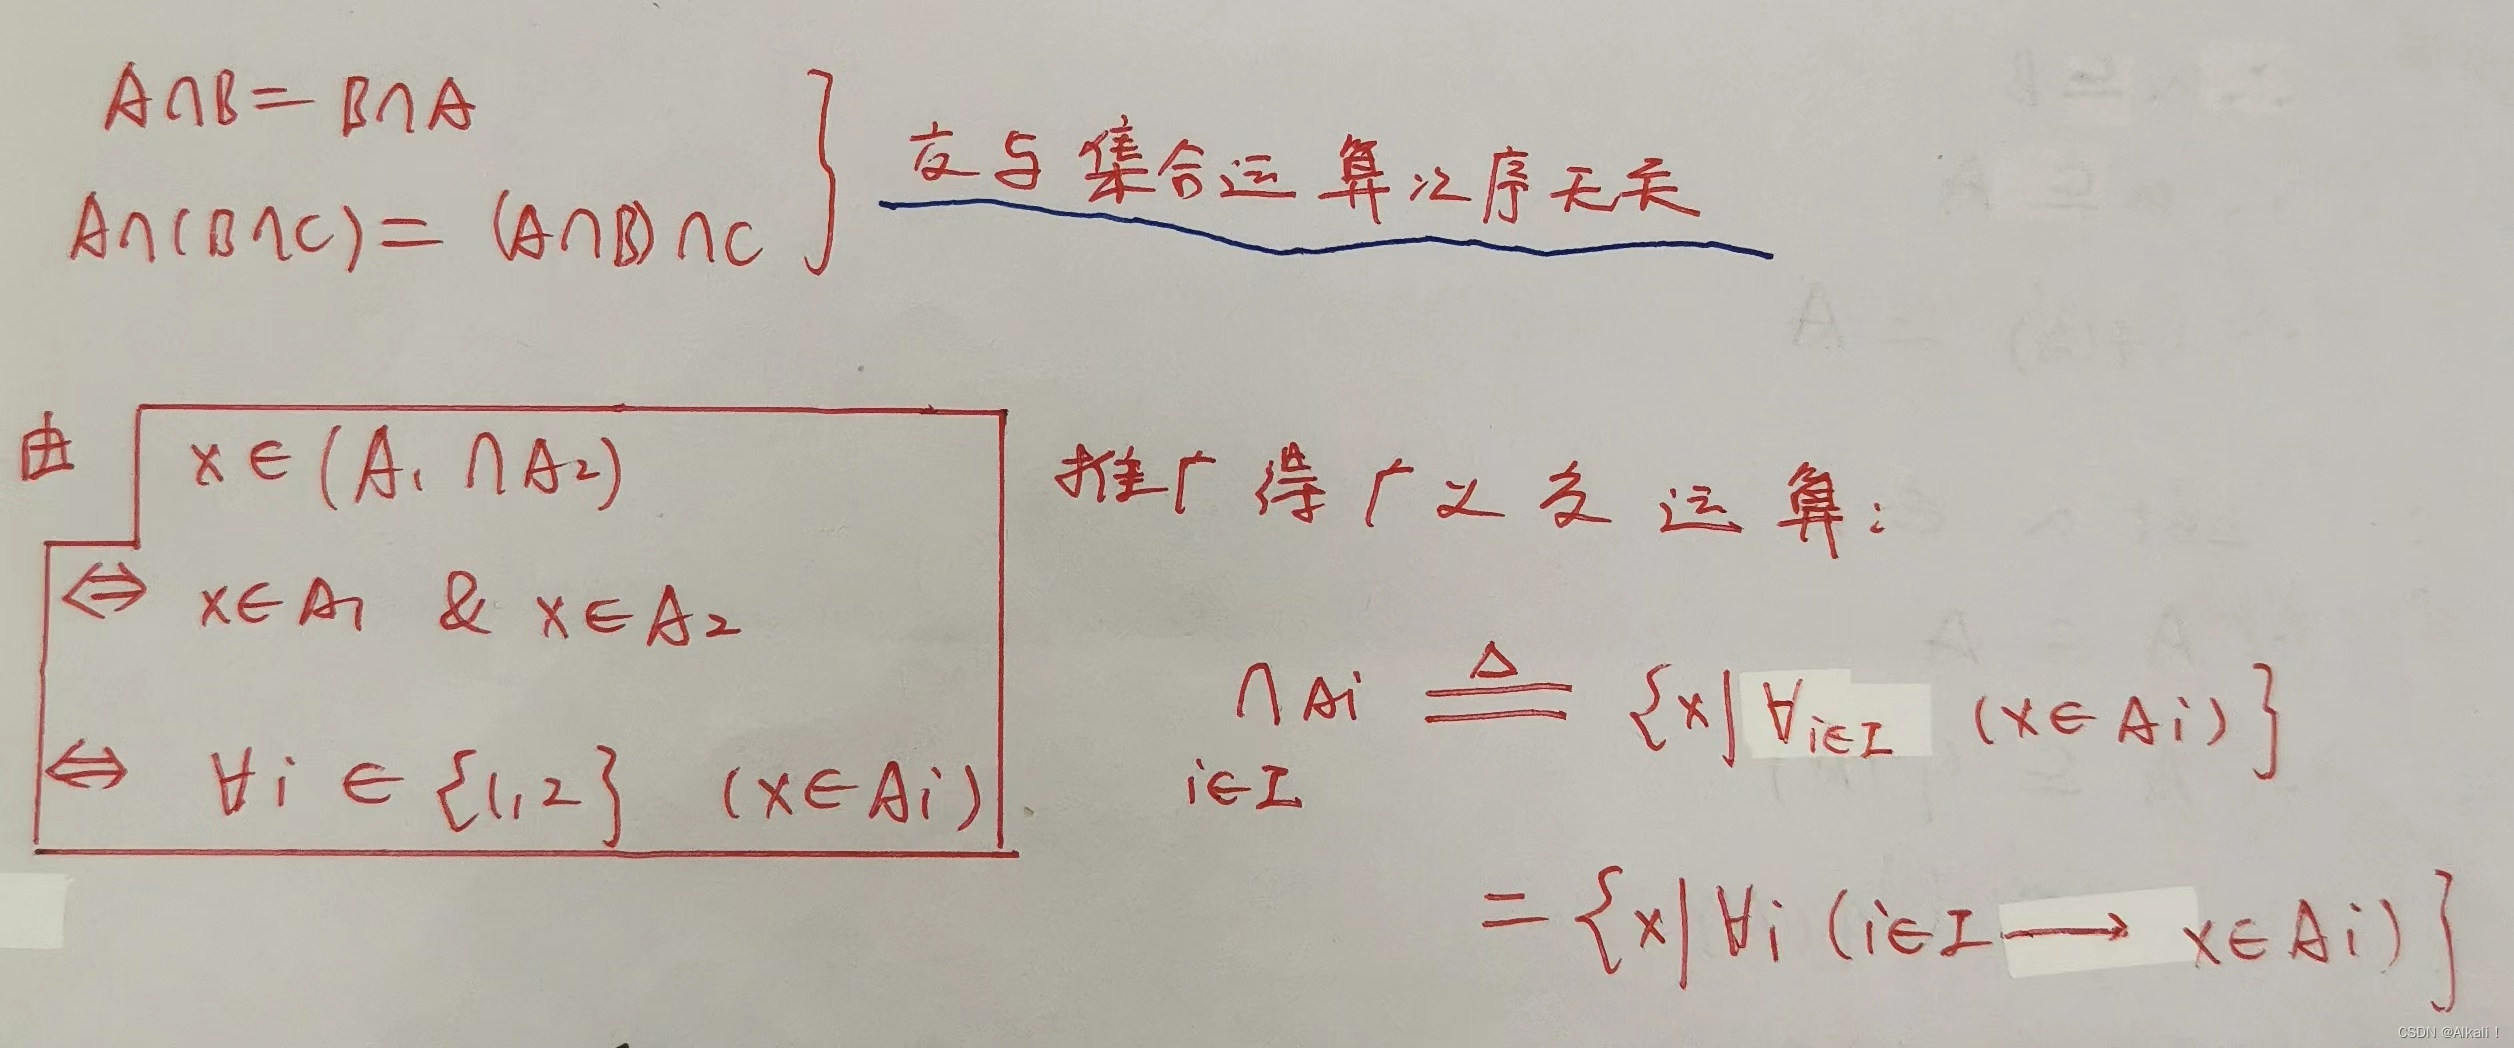 A∩B = B∩A
A∩(B∩C) = (A∩B)∩C
交与集合运算次序无关
由 x∈(A₁∩A₂)
⇔ x∈A₁ & x∈A₂
⇔ ∀i∈{1,2} (x∈Ai)
推广得广义交运算:
∩Ai ≜ {x|∀i∈I (x∈Ai)}
i∈I
={x|∀i(i∈I→x∈Ai)}
CSDN @Alkali！